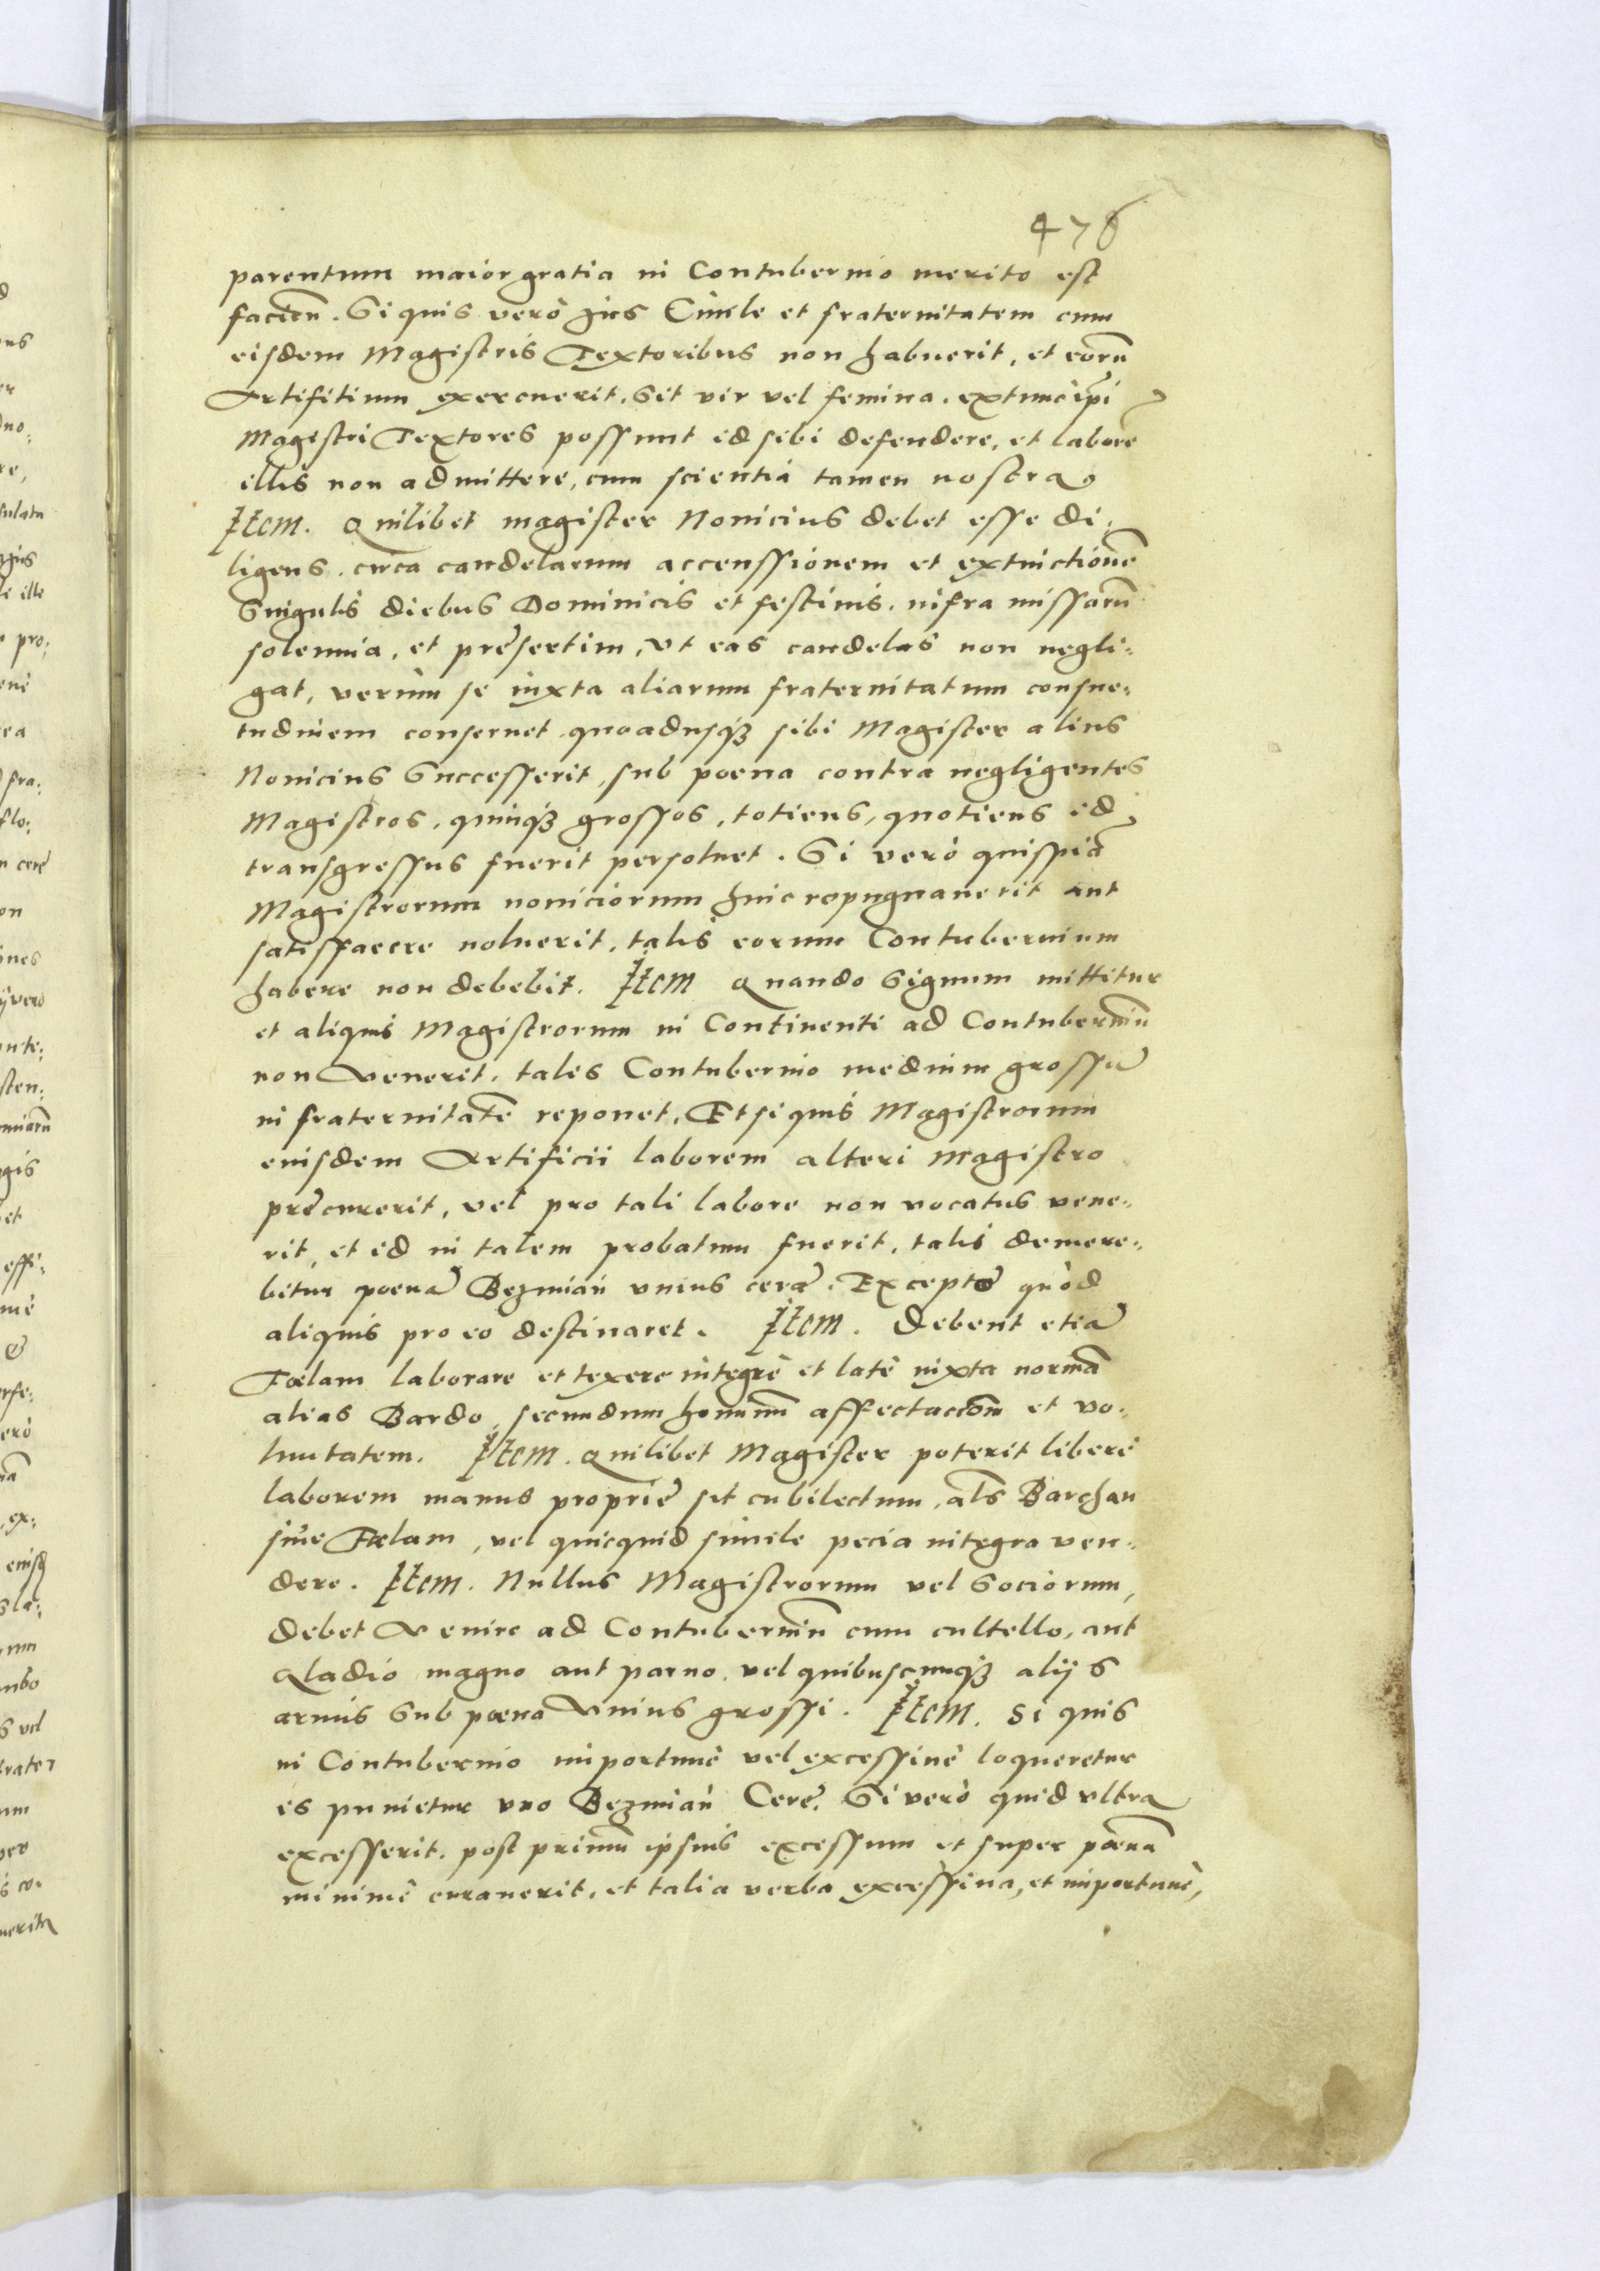 476
parentum maior gratia in Contubernio merito est
faciēn. Si quis verò jus Ciuile et fraternitatem cum
eisdem Magistris Textoribus non habuerit, et eorū
Artifitium exercuerit, Sit vir vel femina, extunc ipi
Magistri Textores possunt id sibi defendere, et laborē
illis non admittere, cum scientia tamen nostra
Item. Quilibet magister Nouicius debet esse di-
ligens, circa candelarum accenssionem et extinctionē
Singulis diebus Dominicis et festiuis, infra missarū
solennia, et pręsertim, Vt eas candelas non negli-
gat, verùm se iuxta aliarum fraternitatum consue-
tudinem conseruet, quoadusqȝ sibi Magister alius
Nouicius Successerit, sub poena contra negligentes
Magistros, quinqȝ grossos, totiens, quotiens id
transgressus fuerit persoluet. Si verò quispiā
Magistrorum nouiciorum huic repugnauerit aut
satisfacere noluerit, talis eorum Contubernium
habere non debebit. Item Quando Signum mittitur
et aliquis Magistrorum in Continenti ad Contuberniū
non Venerit, tales Contubernio medium grossū
in fraternitatē reponet, Et si quis Magistrorum
eiusdem Artificii laborem alteri Magistro
pręcurrerit, vel pro tali labore non vocatus vene-
rit, et id in talem probatum fuerit, talis demere-
bitur poenā Bezmian vnius cerę. Excepto quòd
aliquis pro eo destinaret. Item. Debent etiā
Tœlam laborare et texere integrè et latè iuxta normā
alias Bardo, secundum hominū affectaccōm et vo-
luntatem. Item. Quilibet Magister poterit liberè
laborem manus proprię sit cubilectum, als Barchan
siue Tœlam, vel quicquid simile pecia integra ven-
dere. Item. Nullus Magistrorum vel Sociorum,
debet Venire ad Contuberniū cum cultello, aut
Gladio magno aut paruo, vel quibuscunqȝ alijs
armis Sub pœna Vnius grossi. Item. Si quis
in Contubernio importunè vel excessiuè loqueretur
is punietur vno Bezmian Cerę. Si verò quid vltra
excesserit, post primū ipsius excessum et super pœnā
minimè curauerit, et talia verba excessiua, et importunè,